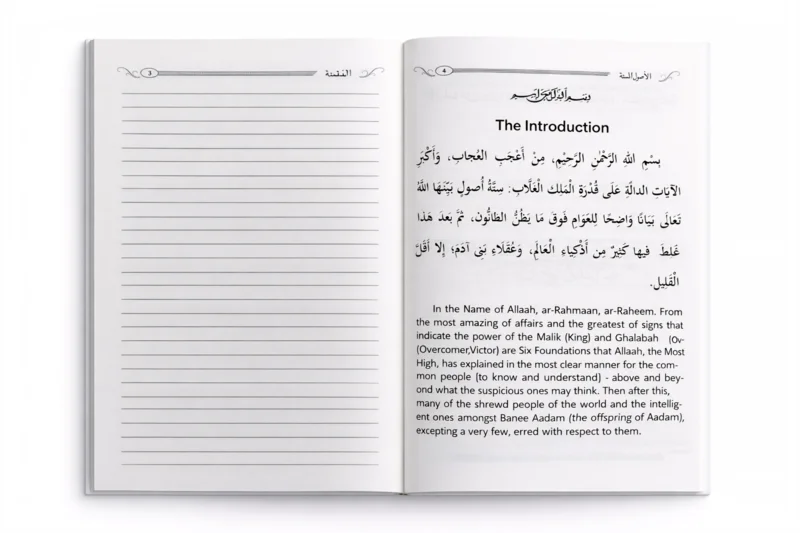 3 المقدمة
4 الأصول الستة
بسم الله الرحمن الرحيم
The Introduction
بِسْمِ اللهِ الرَّحْمٰنِ الرَّحِيْمِ، مِنْ أَعْجَبِ العُجابِ، وَأَكْبَرِ
الآيَاتِ الدالّةِ عَلَى قُدْرَةِ الْمَلِك الْغَلَّاب: سِتَّةُ أُصولٍ بَيَّنَهَا اللهُ
تَعَالَى بَيَانًا وَاضِحًا لِلعَوَامِ فَوقَ مَا يَظُنُّ الظانُّون، ثمَّ بَعدَ هَذا
غَلطَ فيها كَثِيرٌ مِن أَذْكِيَاءِ الْعَالَمِ، وَعُقَلَاءِ بَنِى آدَمَ؛ إلا أَقَلَّ
الْقَلِيل.
In the Name of Allaah, ar-Rahmaan, ar-Raheem. From
the most amazing of affairs and the greatest of signs that
indicate the power of the Malik (King) and Ghalabah (Ov-
(Overcomer,Victor) are Six Foundations that Allaah, the Most
High, has explained in the most clear manner for the com-
mon people [to know and understand] - above and bey-
ond what the suspicious ones may think. Then after this,
many of the shrewd people of the world and the intellig-
ent ones amongst Banee Aadam (the offspring of Aadam),
excepting a very few, erred with respect to them.